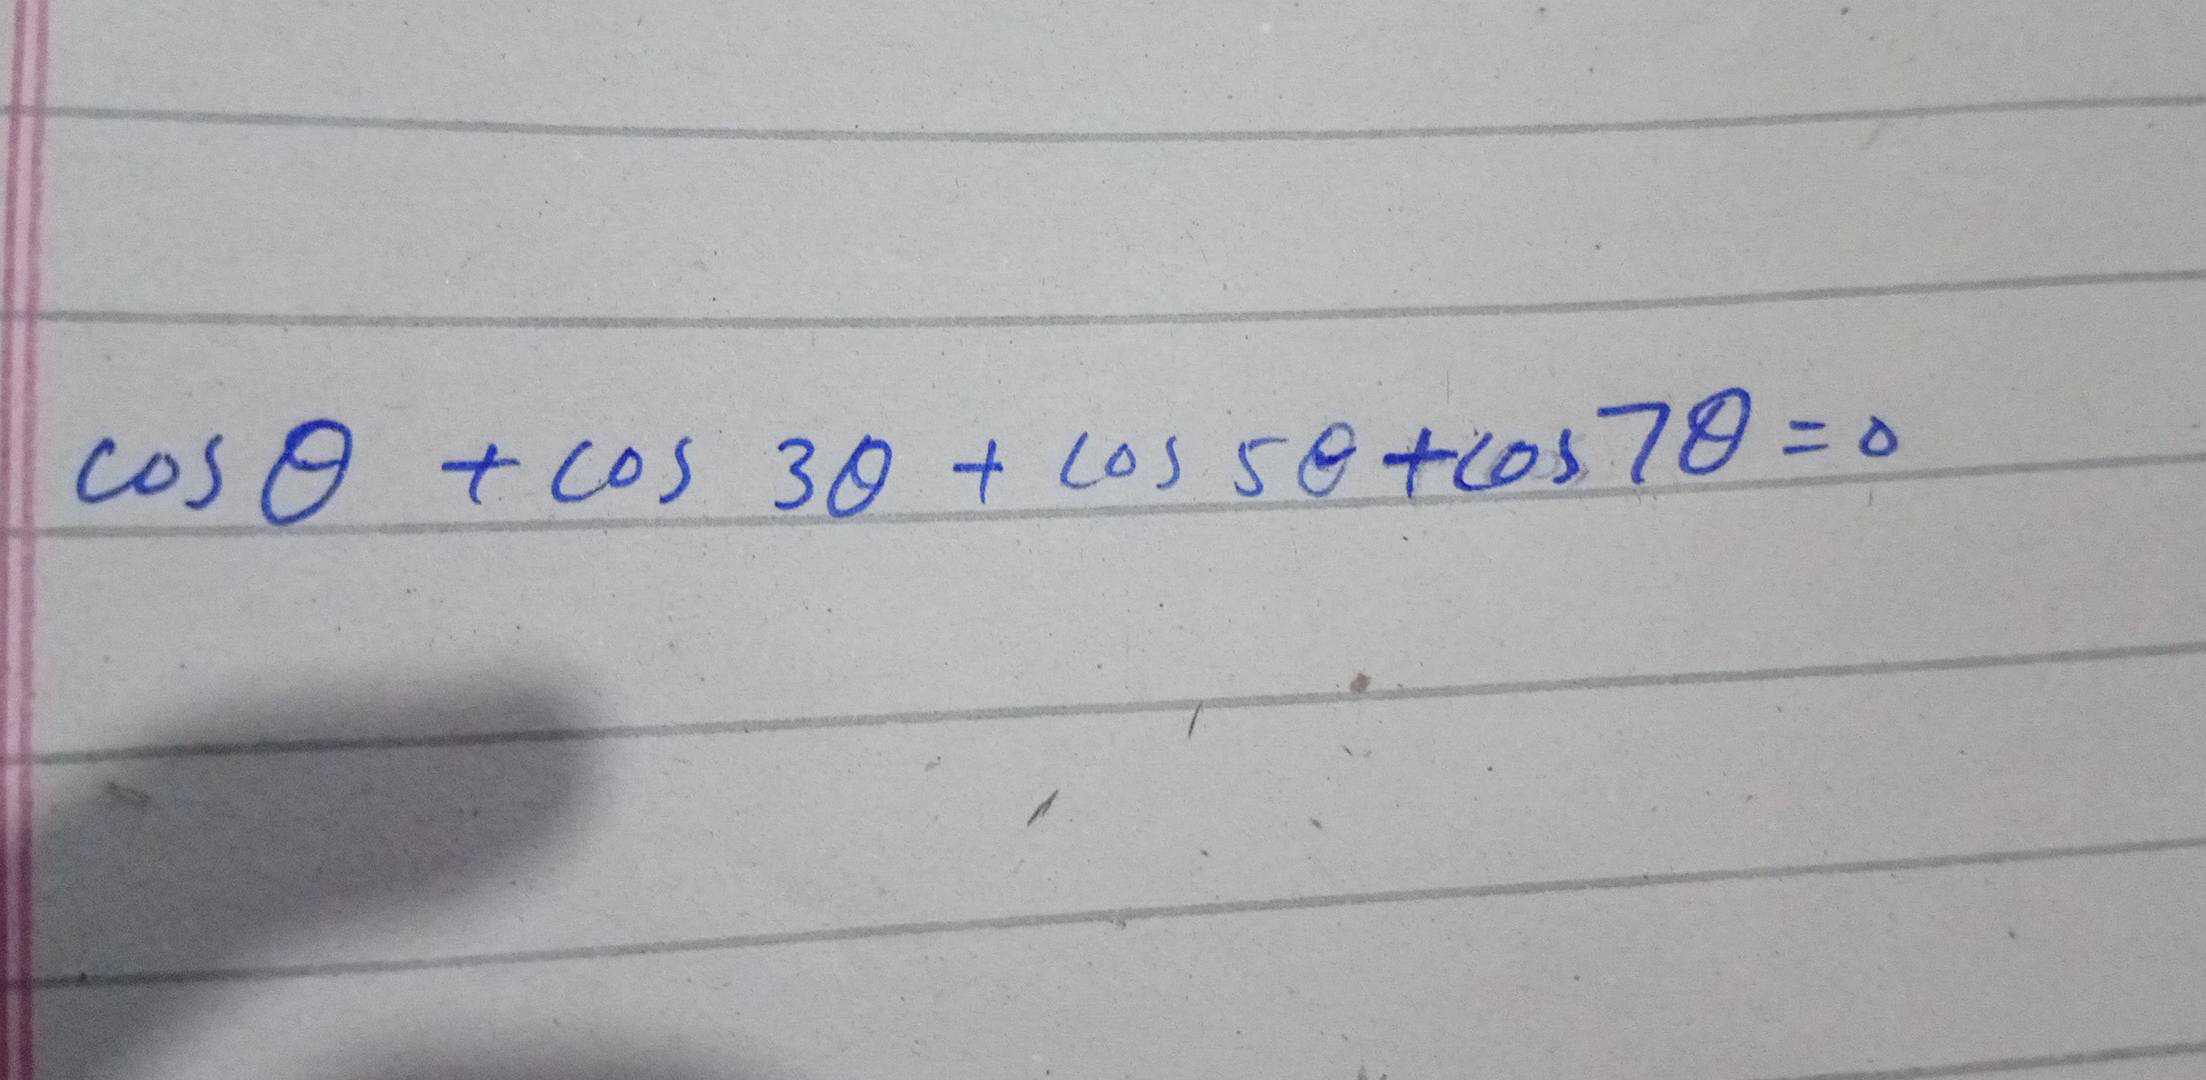 cos θ + cos 3θ + cos 5θ + cos 7θ = 0